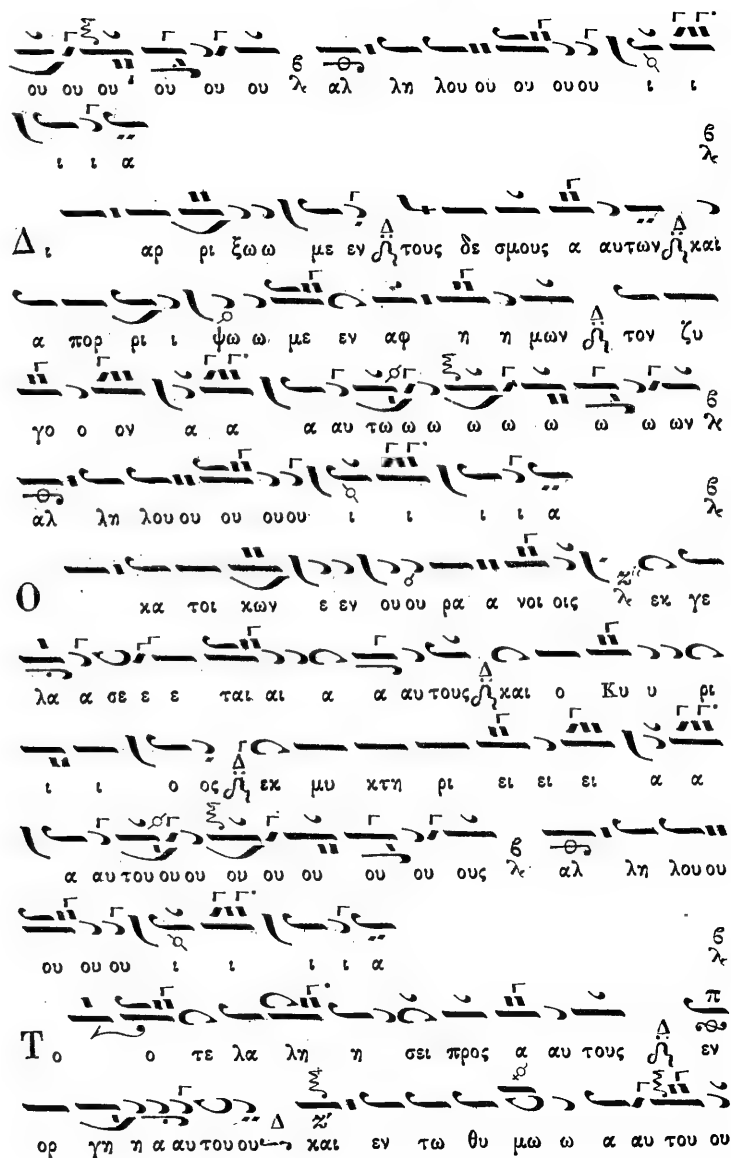 ου ου ου ου ου ου β λς αλ λη λου ου ου ου ου ι ι
ι ι α β λς
Δι αρ ρι ξω ω με εν Δ τους δε σμους α αυτων Δ και
α πορ ρι ι ψω ω με εν αφ η η μων Δ τον ζυ
γο ο ον α α α αυ τω ω ω ω ω ω ω ω ων β λς
αλ λη λου ου ου ου ου ι ι ι ι α β λς
Ο κα τοι κων ε εν ου ου ρα α νοι οις Ζ λς εκ γε
λα α σε ε ε ται αι α α αυ τους Δ και ο Κυ υ ρι
ι ι ο ος Δ εκ μυ κτη ρι ει ει ει α α
α αυ του ου ου ου ου ου ου ου ους β λς αλ λη λου ου
ου ου ου ι ι ι ι α β λς
Το ο τε λα λη η σει προς α αυ τους Δ π εν
ορ γη η α αυ του ου Δ Ζ και εν τω θυ μω ω α αυ του ου